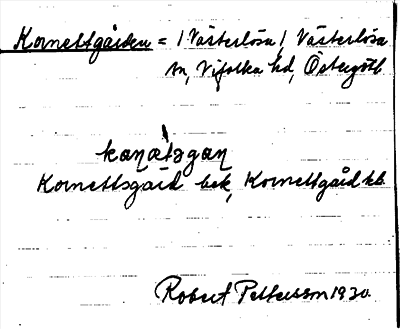 Kornettgården = / Västerlösa / Västerlösa
sn, Vifolka hd, Östergötl.
Kornettsgård bek, Kornettgård kb
Robert Pettersson 1930